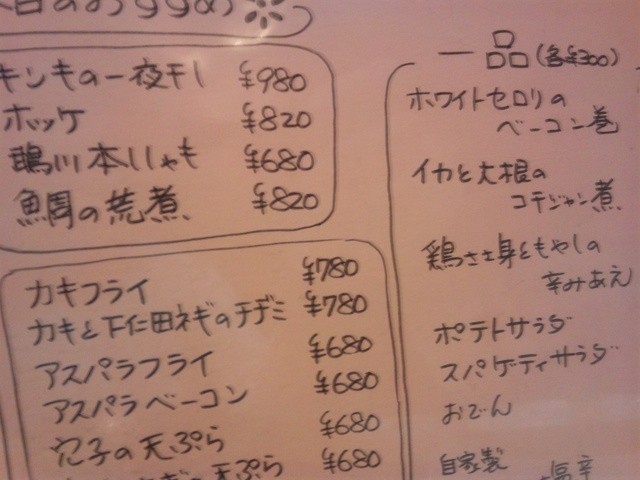 のおすすめ
キンキの一夜干し ¥980
ホッケ ¥820
鵡川本ししゃも ¥680
鯛の荒煮 ¥820
カキフライ ¥780
カキと下仁田ネギのチヂミ ¥780
アスパラフライ ¥680
アスパラベーコン ¥680
穴子の天ぷら ¥680
の天ぷら ¥680
一品(各¥300)
ホワイトセロリの
ベーコン巻
イカと大根の
コチジャン煮
鶏ささ身ともやしの
辛みあえ
ポテトサラダ
スパゲーティサラダ
おでん
自家製
塩辛